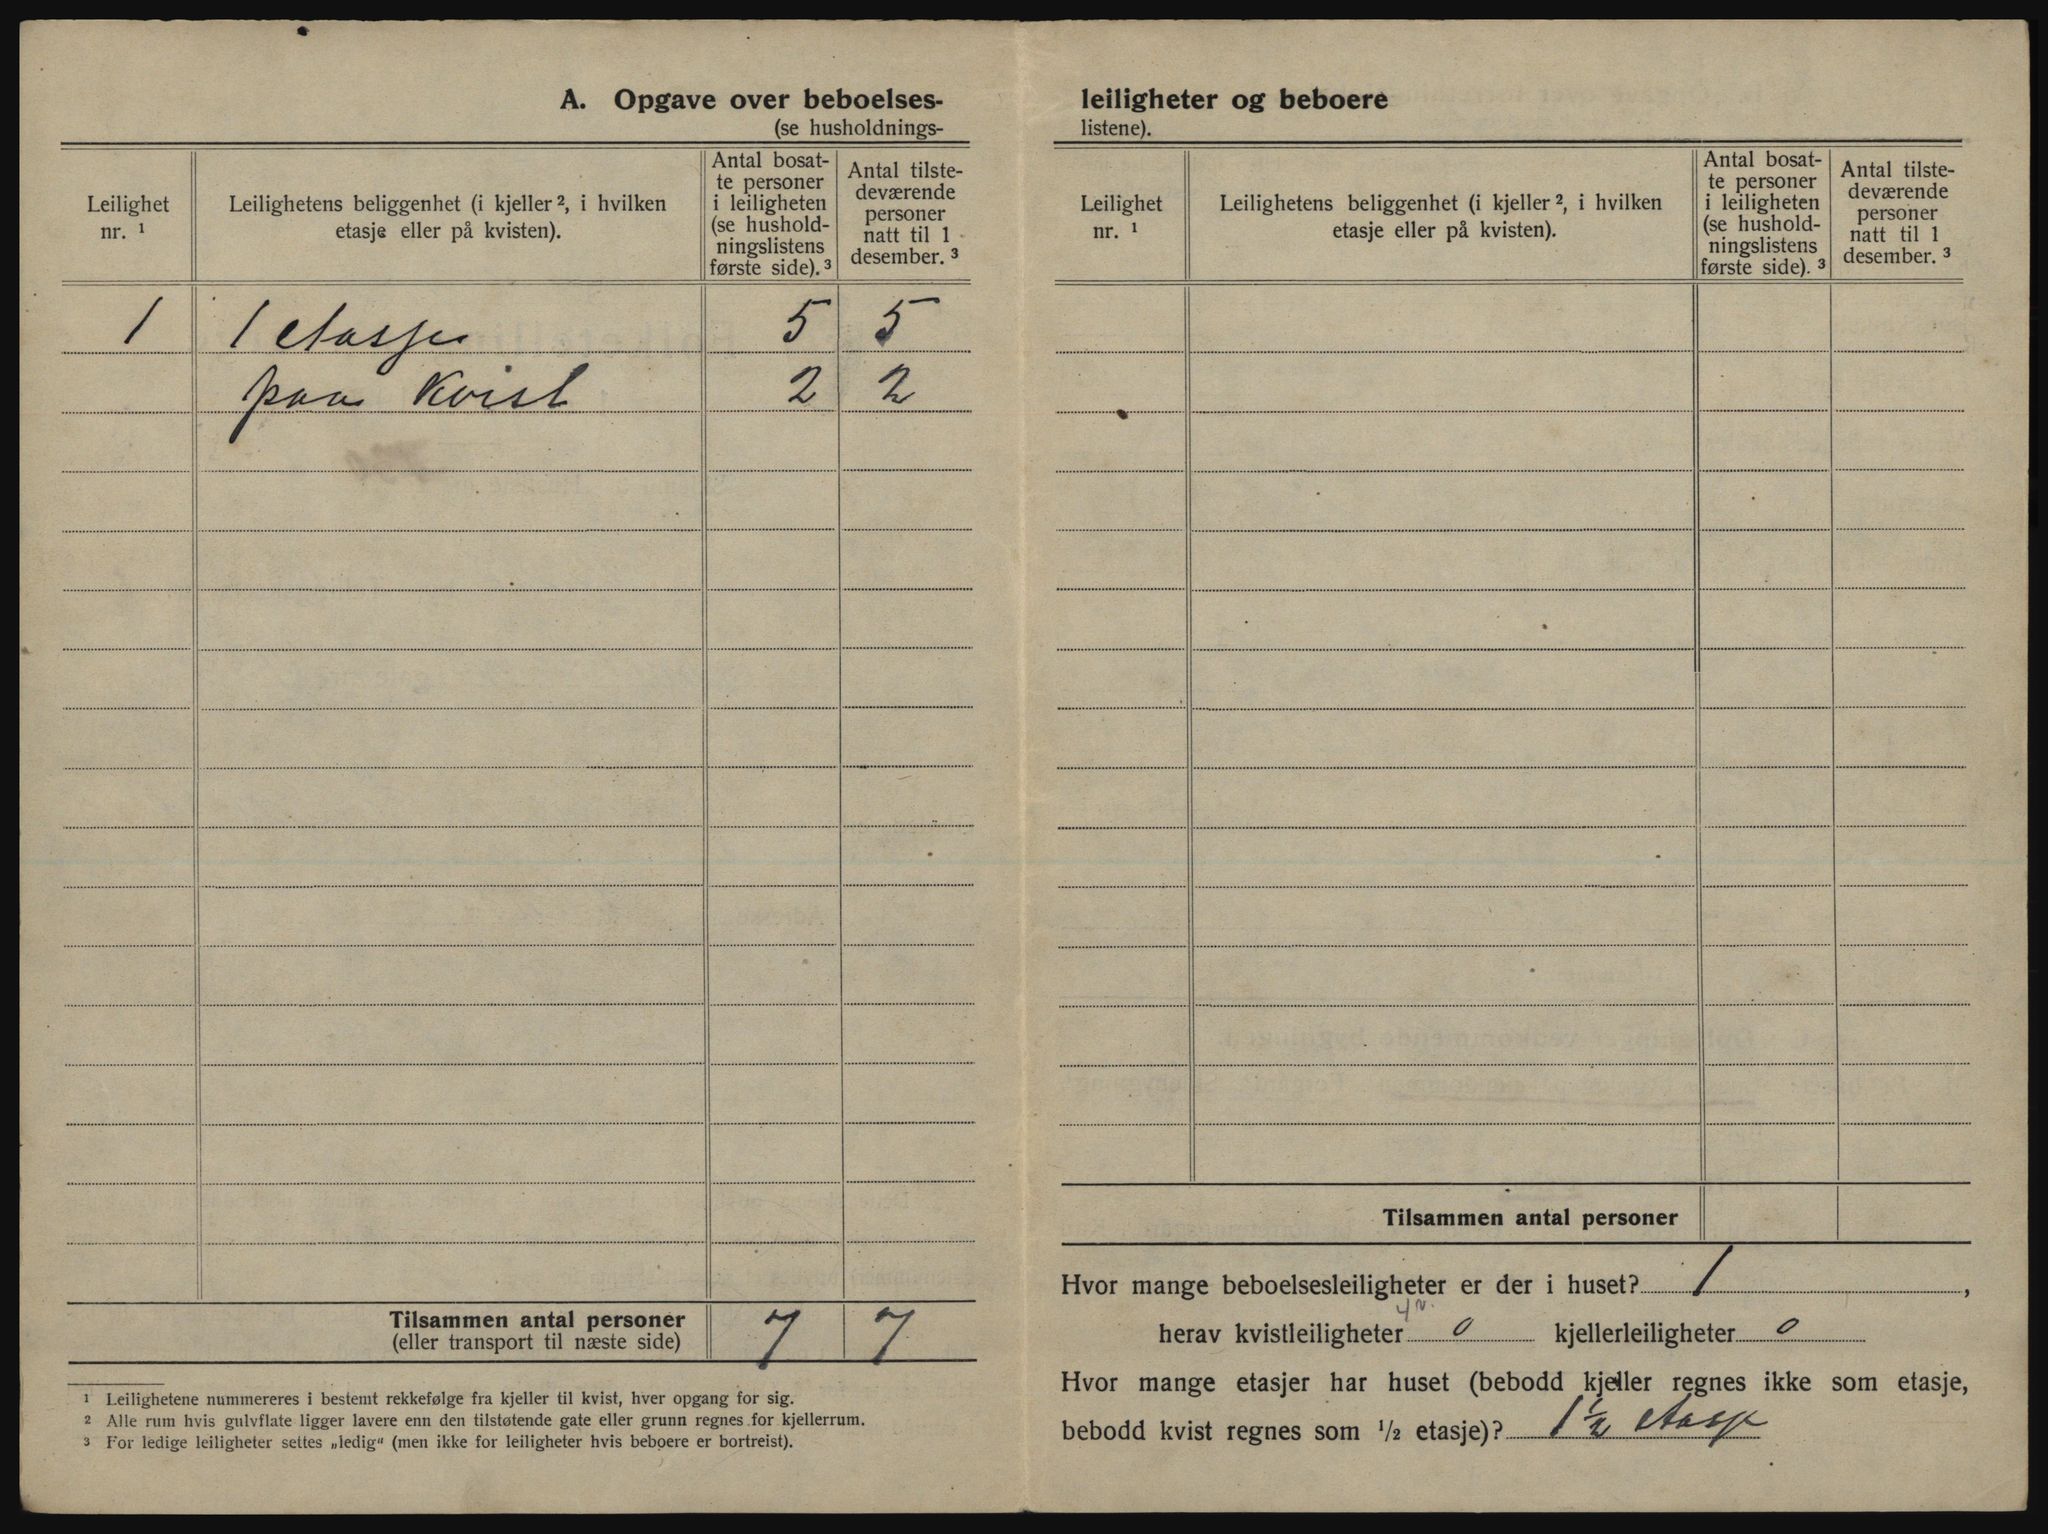 A. Opgave over beboelses-
(se husholdnings-
Leilighet
nr. ¹
Leilighetens beliggenhet (i kjeller ², i hvilken
etasje eller på kvisten).
Antal bosat-
te personer
i leiligheten
(se hushold-
ningslistens
første side). ³
Antal tilste-
deværende
personer
natt til 1
desember. ³
1 1 etasje 5 5
paa Kvist 2 2
Tilsammen antal personer 7 7
(eller transport til næste side)
¹ Leilighetene nummereres i bestemt rekkefølge fra kjeller til kvist, hver opgang for sig.
² Alle rum hvis gulvflate ligger lavere enn den tilstøtende gate eller grunn regnes for kjellerrum.
³ For ledige leiligheter settes „ledig“ (men ikke for leiligheter hvis beboere er bortreist).
leiligheter og beboere
listene).
Leilighet
nr. ¹
Leilighetens beliggenhet (i kjeller ², i hvilken
etasje eller på kvisten).
Antal bosat-
te personer
i leiligheten
(se hushold-
ningslistens
første side). ³
Antal tilste-
deværende
personer
natt til 1
desember. ³
Tilsammen antal personer
Hvor mange beboelsesleiligheter er der i huset? 1,
herav kvistleiligheter 0 kjellerleiligheter 0
Hvor mange etasjer har huset (bebodd kjeller regnes ikke som etasje,
bebodd kvist regnes som 1/2 etasje)? 1 1/2 etasje